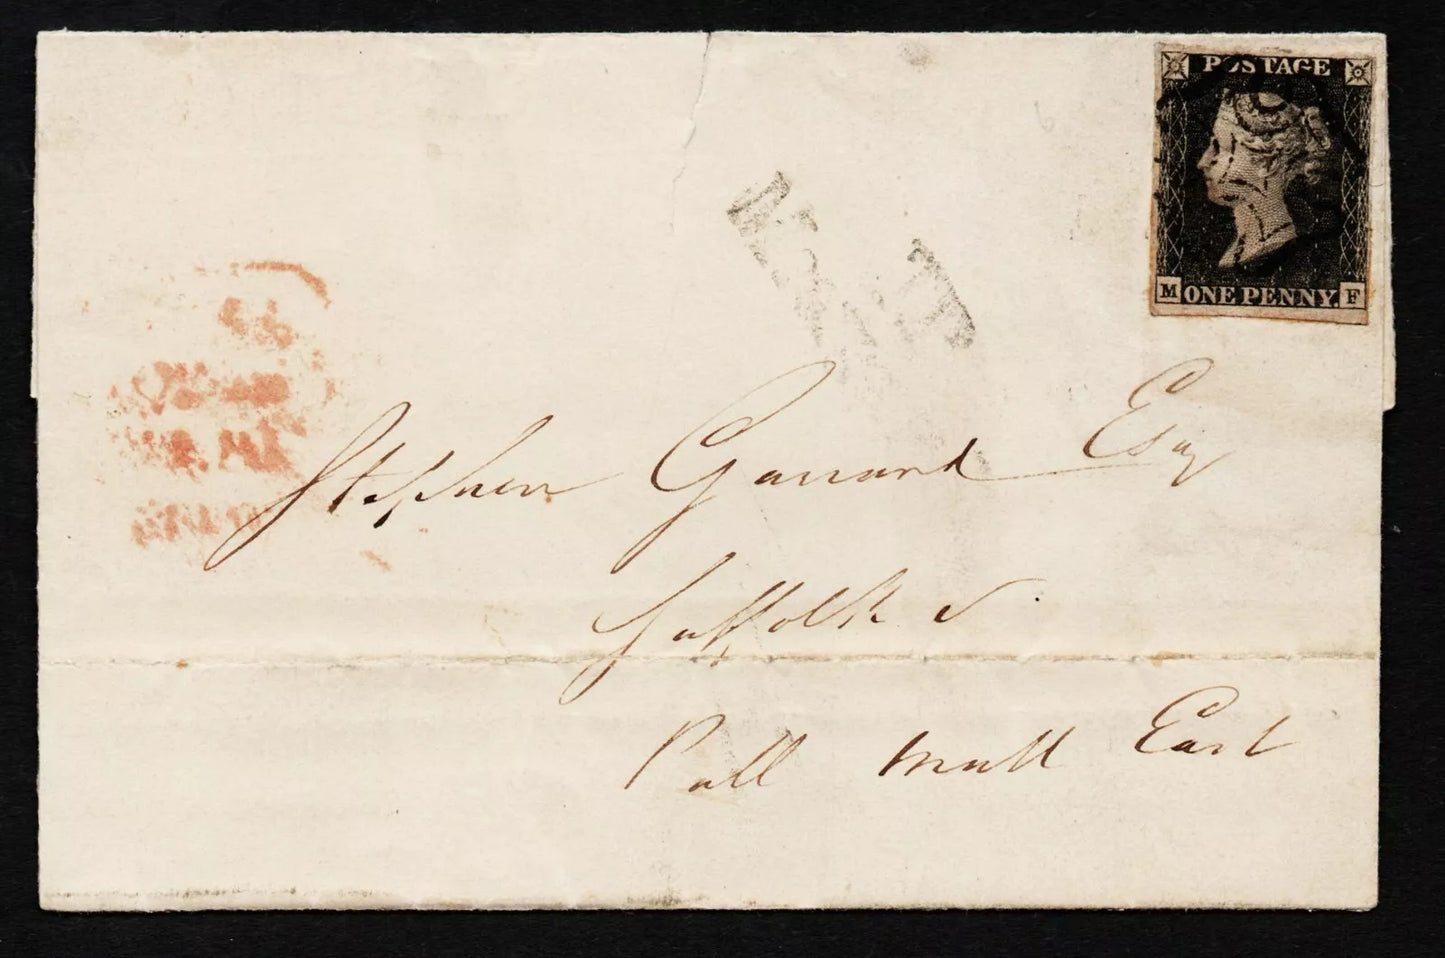 POSTAGE
M ONE PENNY. F
Stephen Garrard Esq
Suffolk St
Pall Mall East